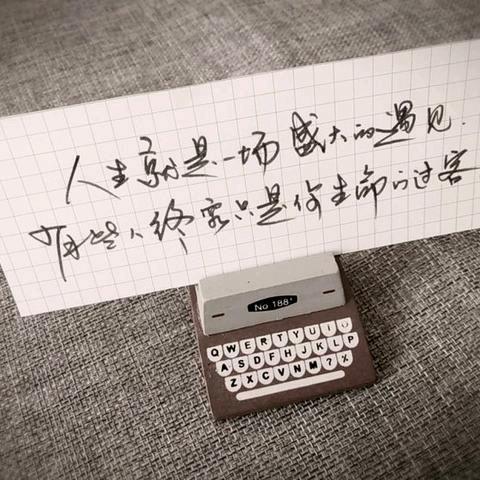 人生就是一场盛大的遇见.
有些人终究只是你生命的过客
No 188°
QWERTYUIO
ASDFHJKLP
ZXCVNM?%